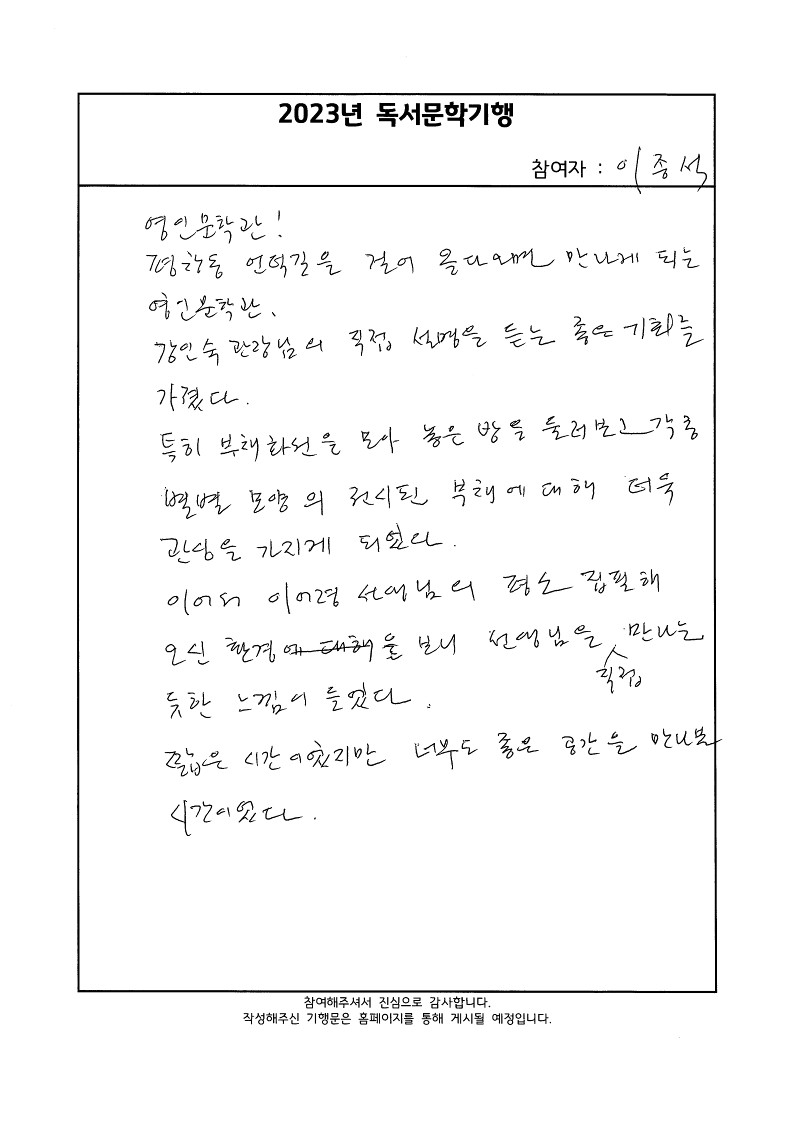 2023년 독서문학기행
참여자 : 이종석
영인문학관!
평창동 언덕길을 걸어 올다오면 만나게 되는
영인문학관.
강인숙 관장님의 직접 설명을 듣는 좋은 기회를
가졌다.
특히 부채화선을 모아 놓은 방을 둘러보고 각종
별별 모양의 전시된 부채에 대해 더욱
관심을 가지게 되었다.
이어서 이어령 선생님의 평소 집필해
오신 환경에 대해 을 보니 선생님을 직접 만나는
듯한 느낌이 들었다.
짧은 시간이었지만 너무도 좋은 공간을 만나본
시간이었다.
참여해주셔서 진심으로 감사합니다.
작성해주신 기행문은 홈페이지를 통해 게시될 예정입니다.